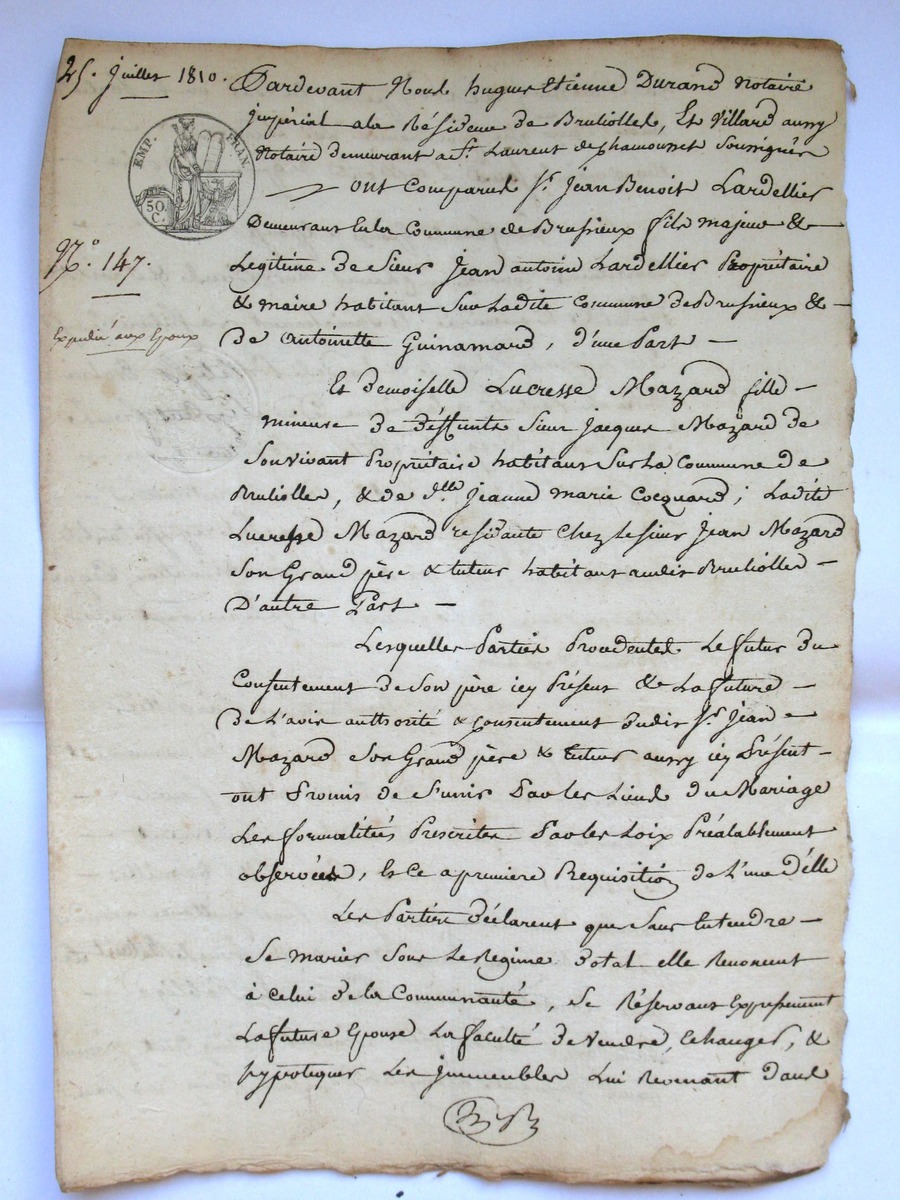 25. Juillet 1810.
EMP. FRAN.
50. C.
N.° 147.
Expedié aux Epoux
Pardevant Nous hugues Etienne Durand Notaire
jmpérial ala Résidence de Brulioles, Et Villard aussy
Notaire demeurant a S.t Laurent de Chamousset Soussignés
ont Comparus S.r Jean Benoit Lardellier
Demeurant En la Commune de Brussieux fils majeur &
Legitime de Sieur Jean antoine Lardellier Propriétaire
& maire habitant Sur Ladite Commune de Brussieux &
de Antoinette Guinamard, d'une Part —
Et demoiselle Lucresse Mazard fille —
mineure de déffunts Sieur Jacques Mazard de
Son vivant Propriétaire habitant Sur La Commune de
Brulioles, & de d.lle Jeanne marie Cocquard; Ladite
Lucresse Mazard residante Chez Le Sieur Jean Mazard
Son Grand père & tuteur habitant audit Brulioles —
D'autre Part —
Lesquelles Parties Procedantes Le futur du
Consentement de Son père icy Présent & La future —
de L'avis authorité & consentement dudit S.r Jean
Mazard Son Grand père & tuteur aussy icy Présent —
ont Promis de S'unir Par les Liens du Mariage
Les formalités Prescrites Par les Loix Préalablement
observées, Et Ce a première Requisition de L'une d'elle
Les Parties déclarent que Sans Entendre —
Se marier Sous Le Régime dotal elle Renoncent
à Celui de la Communauté, Se Réservant Expressement
La future Epouse La faculté de Vendre, Echanger, &
hypotequer Les jmmeubles Lui Revenant dans